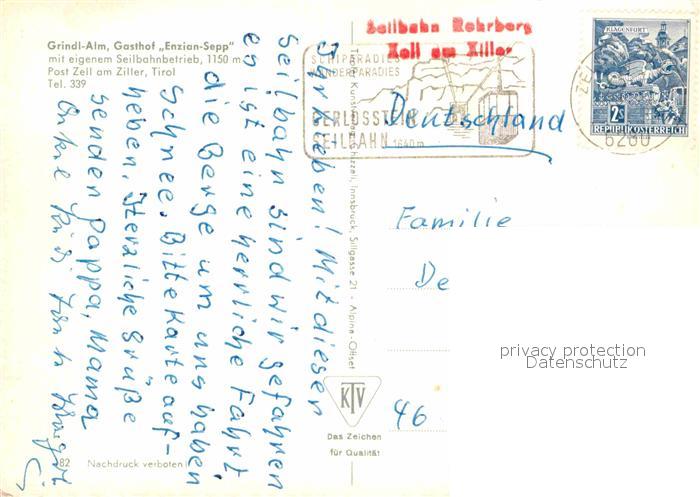 Grindl-Alm, Gasthof „Enzian-Sepp"
mit eigenem Seilbahnbetrieb, 1150 m
Post Zell am Ziller, Tirol
Tel. 339
Ihr Lieben! Mit dieser
Seilbahn sind wir gefahren
es ist eine herrliche Fahrt,
die Berge um uns haben
Schnee. Bitte Karte auf-
heben. Herzliche Grüße
senden Pappa, Mama
Onkel
82 Nachdruck verboten
Innsbruck, Sillgasse 21 - Alpina-Offset
KTV
Das Zeichen
für Qualität
Seilbahn Rohrberg
Zell am Ziller
SCHIPARADIES
WANDERPARADIES
GERLOSSTEIN
SEILBAHN 1640 m
KLAGENFURT
2S
REPUBLIK ÖSTERREICH
6280
Deutschland
Familie
De
46
privacy protection
Datenschutz